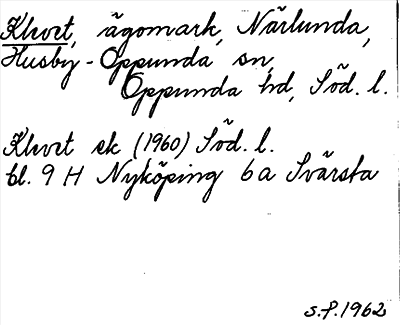 Klovt, ägomark, Närlunda,
Husby-Oppunda sn,
Oppunda hd, Söd. l.
Klovt ek (1960) Söd. l.
bl. 9 H Nyköping 6a Svärsta
S.P.1962